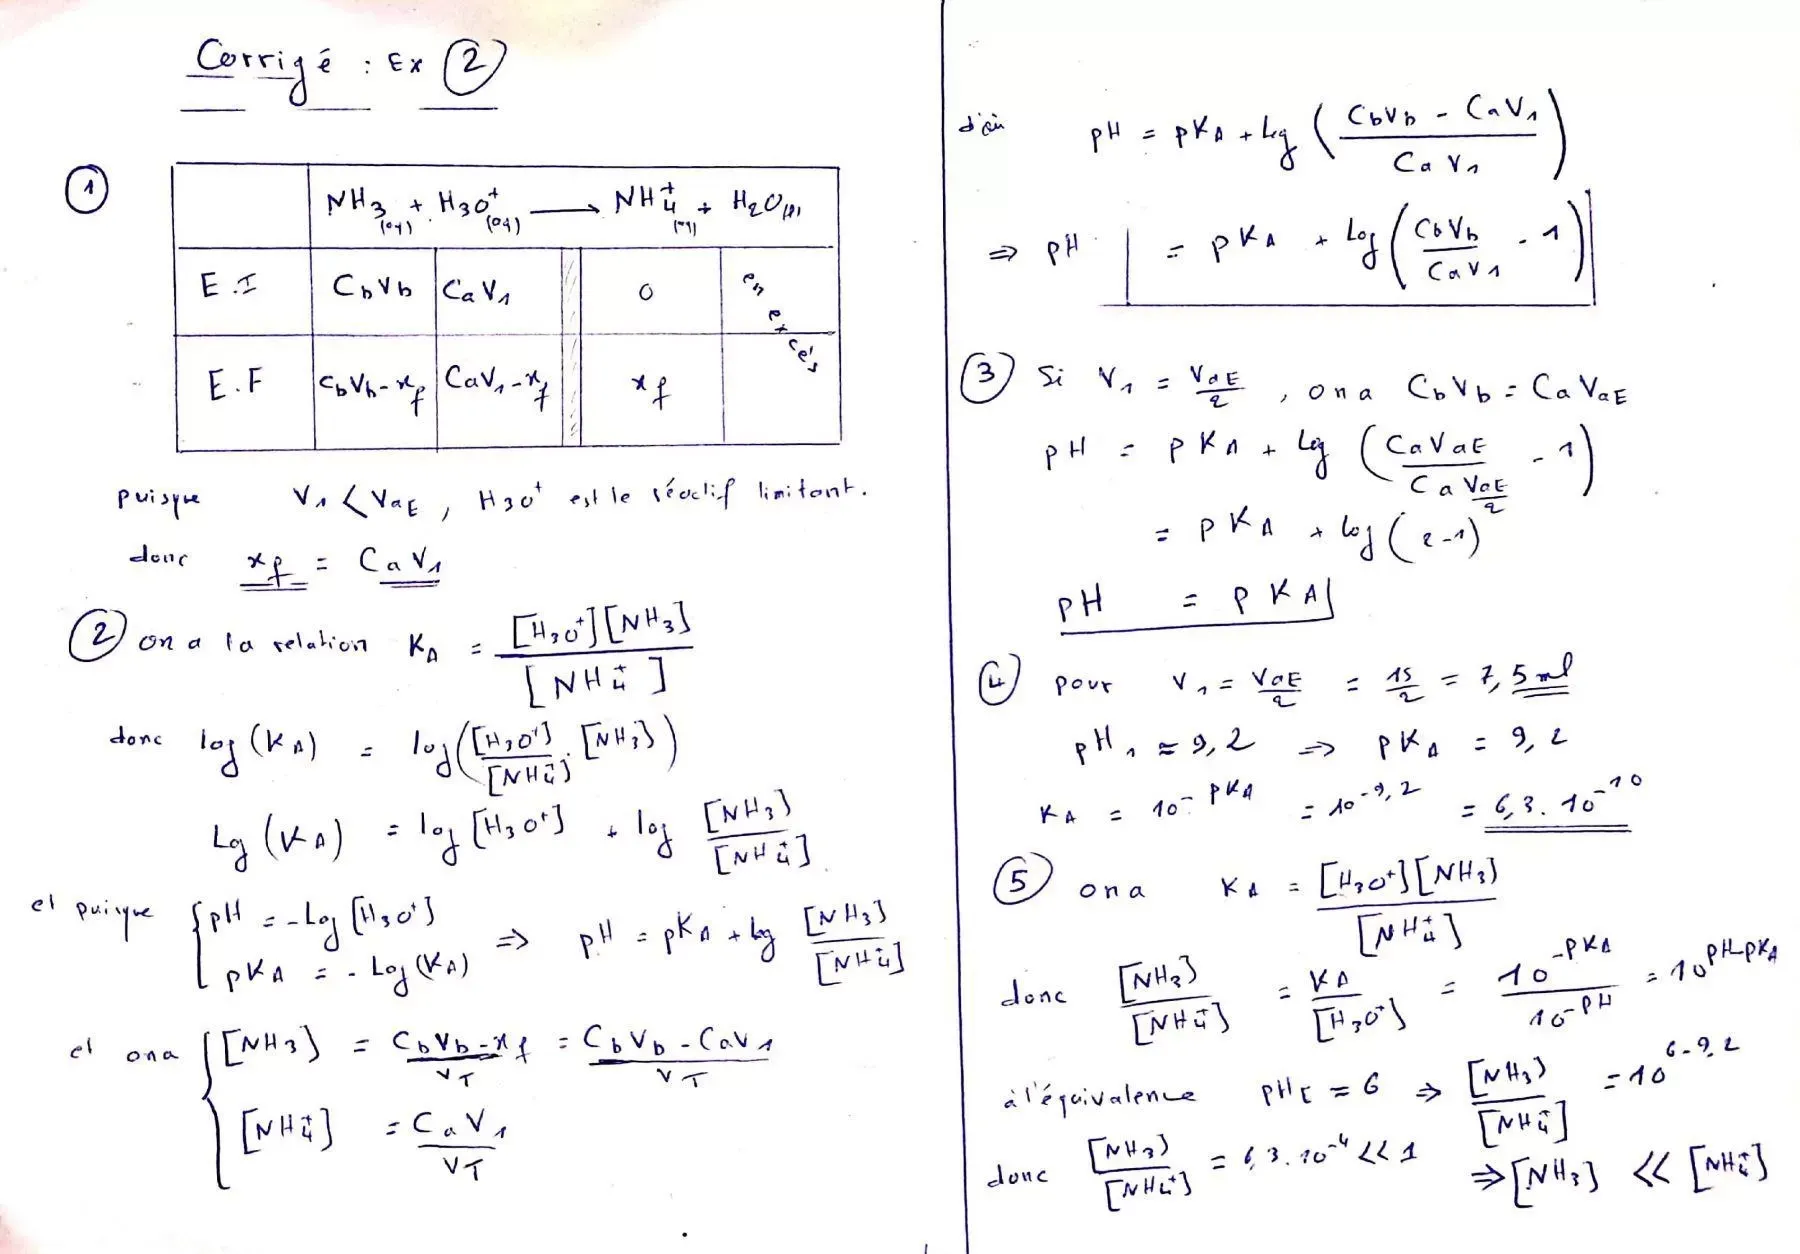 Corrigé : Ex ②
①
NH3(aq) + H3O+(aq) → NH4+(aq) + H2O(l)
E.I | CbVb | CaV1 | 0 | en excès
E.F | CbVb-xf | CaV1-xf | xf
puisque V1 < VaE, H3O+ est le réactif limitant.
donc xf = CaV1
② on a la relation KA = [H3O+][NH3] / [NH4+]
donc log(KA) = log([H3O+]/[NH4+] . [NH3])
Log(KA) = log[H3O+] + log [NH3]/[NH4+]
et puisque { pH = -Log[H3O+]
pKA = -Log(KA) ⇒ pH = pKA + log [NH3]/[NH4+]
et on a { [NH3] = CbVb-xf / VT = CbVb-CaV1 / VT
[NH4+] = CaV1 / VT
d'où pH = pKA + Log (CbVb - CaV1 / CaV1)
⇒ pH = pKA + Log (CbVb/CaV1 - 1)
③ Si V1 = VaE/2, on a CbVb = CaVaE
pH = pKA + Log (CaVaE / Ca VaE/2 - 1)
= pKA + log (2-1)
pH = pKA
④ pour V1 = VaE/2 = 15/2 = 7,5 ml
pH1 ≈ 9,2 ⇒ pKA = 9,2
KA = 10^-pKA = 10^-9,2 = 6,3.10^-10
⑤ on a KA = [H3O+][NH3] / [NH4+]
donc [NH3]/[NH4+] = KA/[H3O+] = 10^-pKA / 10^-pH = 10^pH-pKA
à l'équivalence pHE ≈ 6 ⇒ [NH3]/[NH4+] = 10^6-9,2
donc [NH3]/[NH4+] = 6,3.10^-4 << 1 ⇒ [NH3] << [NH4+]